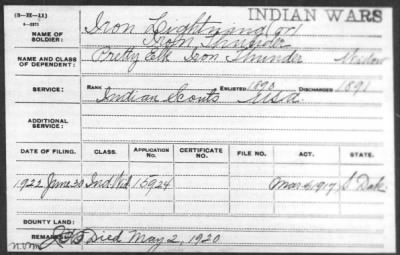 (3-22-11)
INDIAN WARS
NAME OF SOLDIER: Iron Lightning or
Iron Thunder
NAME AND CLASS OF DEPENDENT: Pretty Elk Iron Thunder Widow
SERVICE: RANK ENLISTED 1890 DISCHARGED 1891
Indian Scouts USA
ADDITIONAL SERVICE:
DATE OF FILING. CLASS. APPLICATION No. CERTIFICATE No. FILE No. ACT. STATE.
1922 June 30 Ind Wid 15924 Mar 4, 1917 S Dak
BOUNTY LAND:
REMARKS: Died May 2, 1920